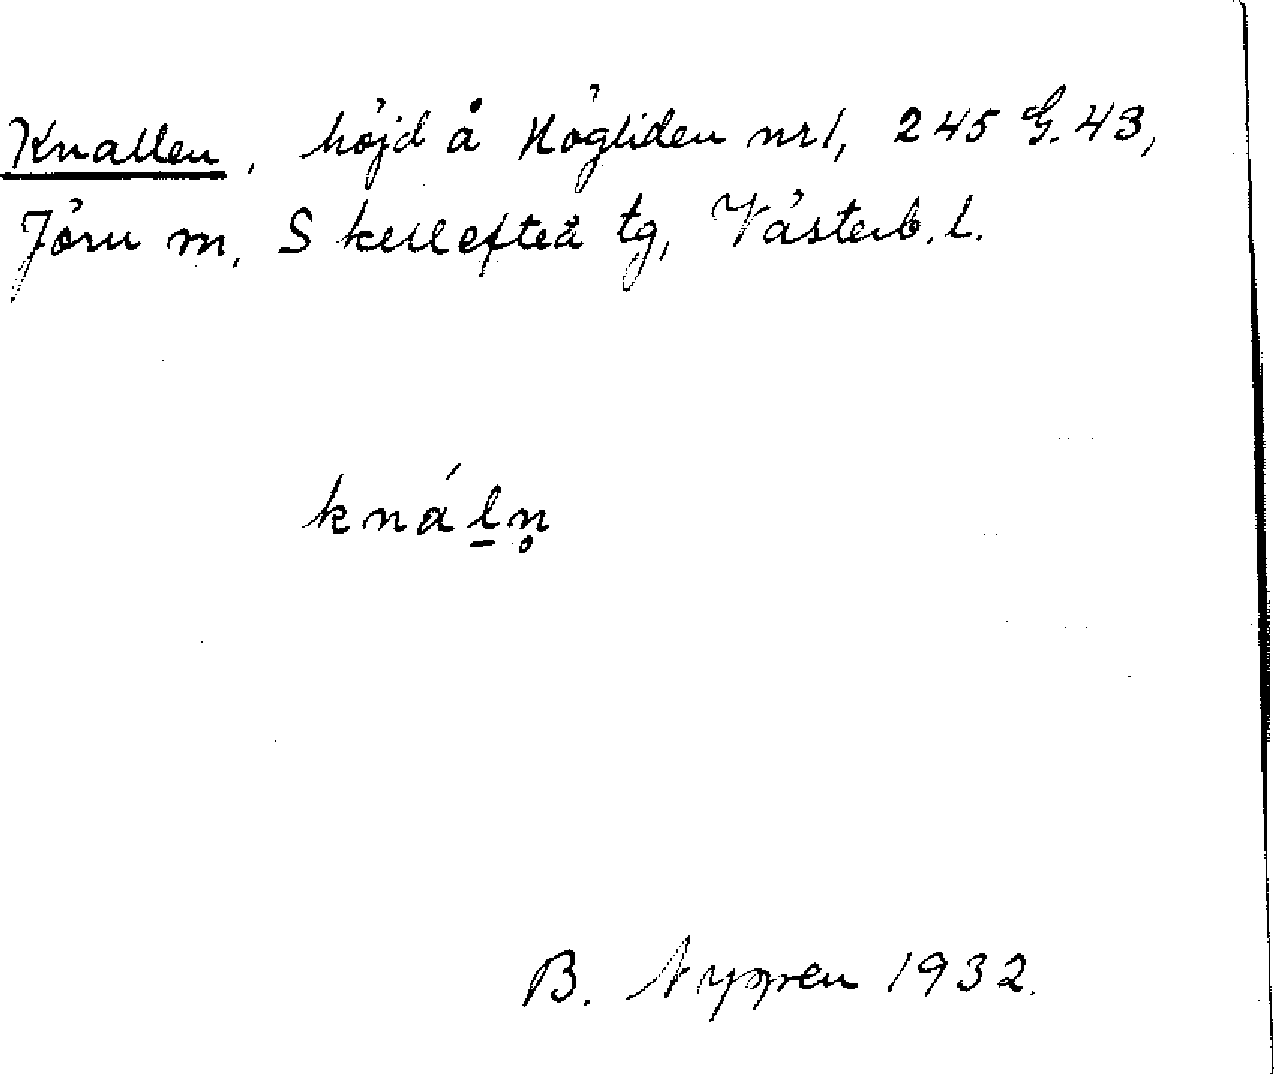 Knallen, höjd å Högliden nr1, 245 G.43,
Jörn m, Skellefteå tg, Västerb.l.
knáḻn̥
B. Nyppen 1932.